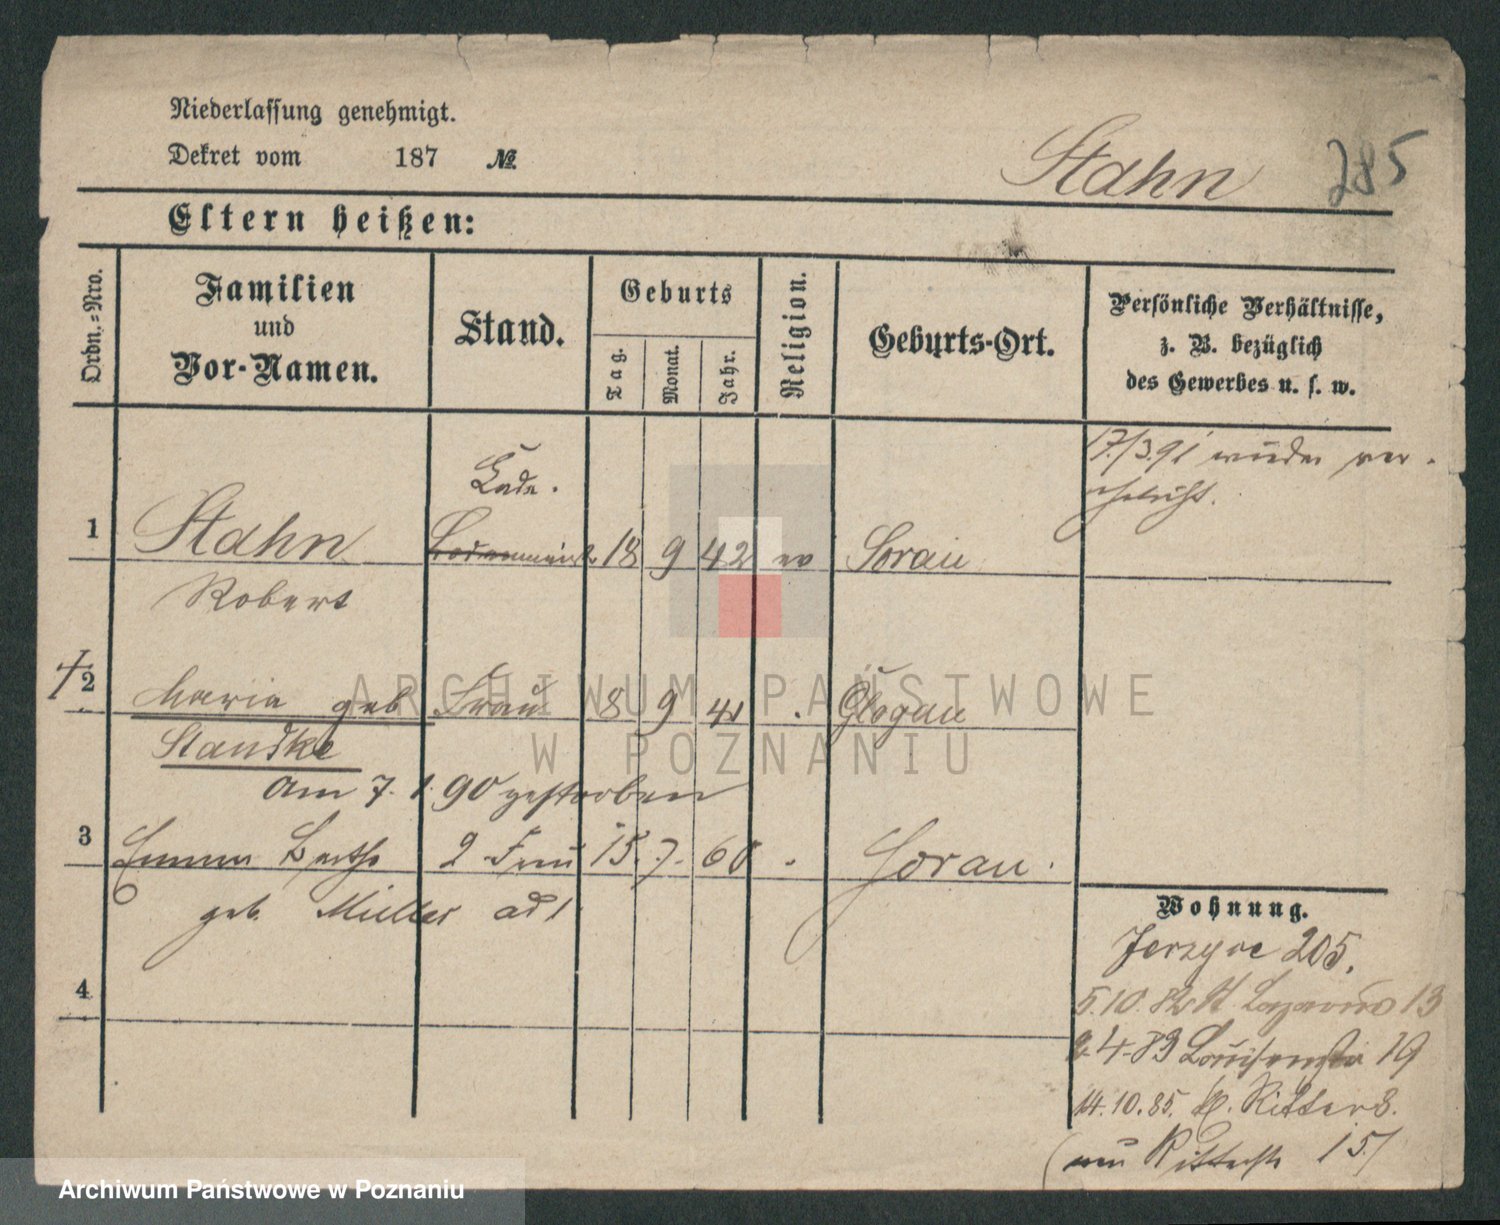 Niederlassung genehmigt.
Dekret vom 187 №
Stahn 285
Eltern heißen:
Ordn.-Nro.
Familien
und
Vor-Namen.
Stand.
Geburts
Tag.
Monat.
Jahr.
Religion.
Geburts-Ort.
Persönliche Verhältnisse,
z. B. bezüglich
des Gewerbes u. s. w.
17./3.91 wieder ver-
ehelicht.
1 Stahn 18 9 42 ev Sorau
Robert
+2 Maria geb Frau 8 9 41 . Glogau
Standke
am 7. 1. 90 gestorben
3 Emma Bertha 2 Frau 15. 7. 60 . Sorau.
geb. Müller ad 1
4
Wohnung.
Jerzyce 205.
5.10.82 St. Lazarus 13
2.4.83 Louisenstr 19
14.10.85. Kl. Ritter 3.
(neu Ritterstr 15)
ARCHIWUM PAŃSTWOWE
W POZNANIU
Archiwum Państwowe w Poznaniu